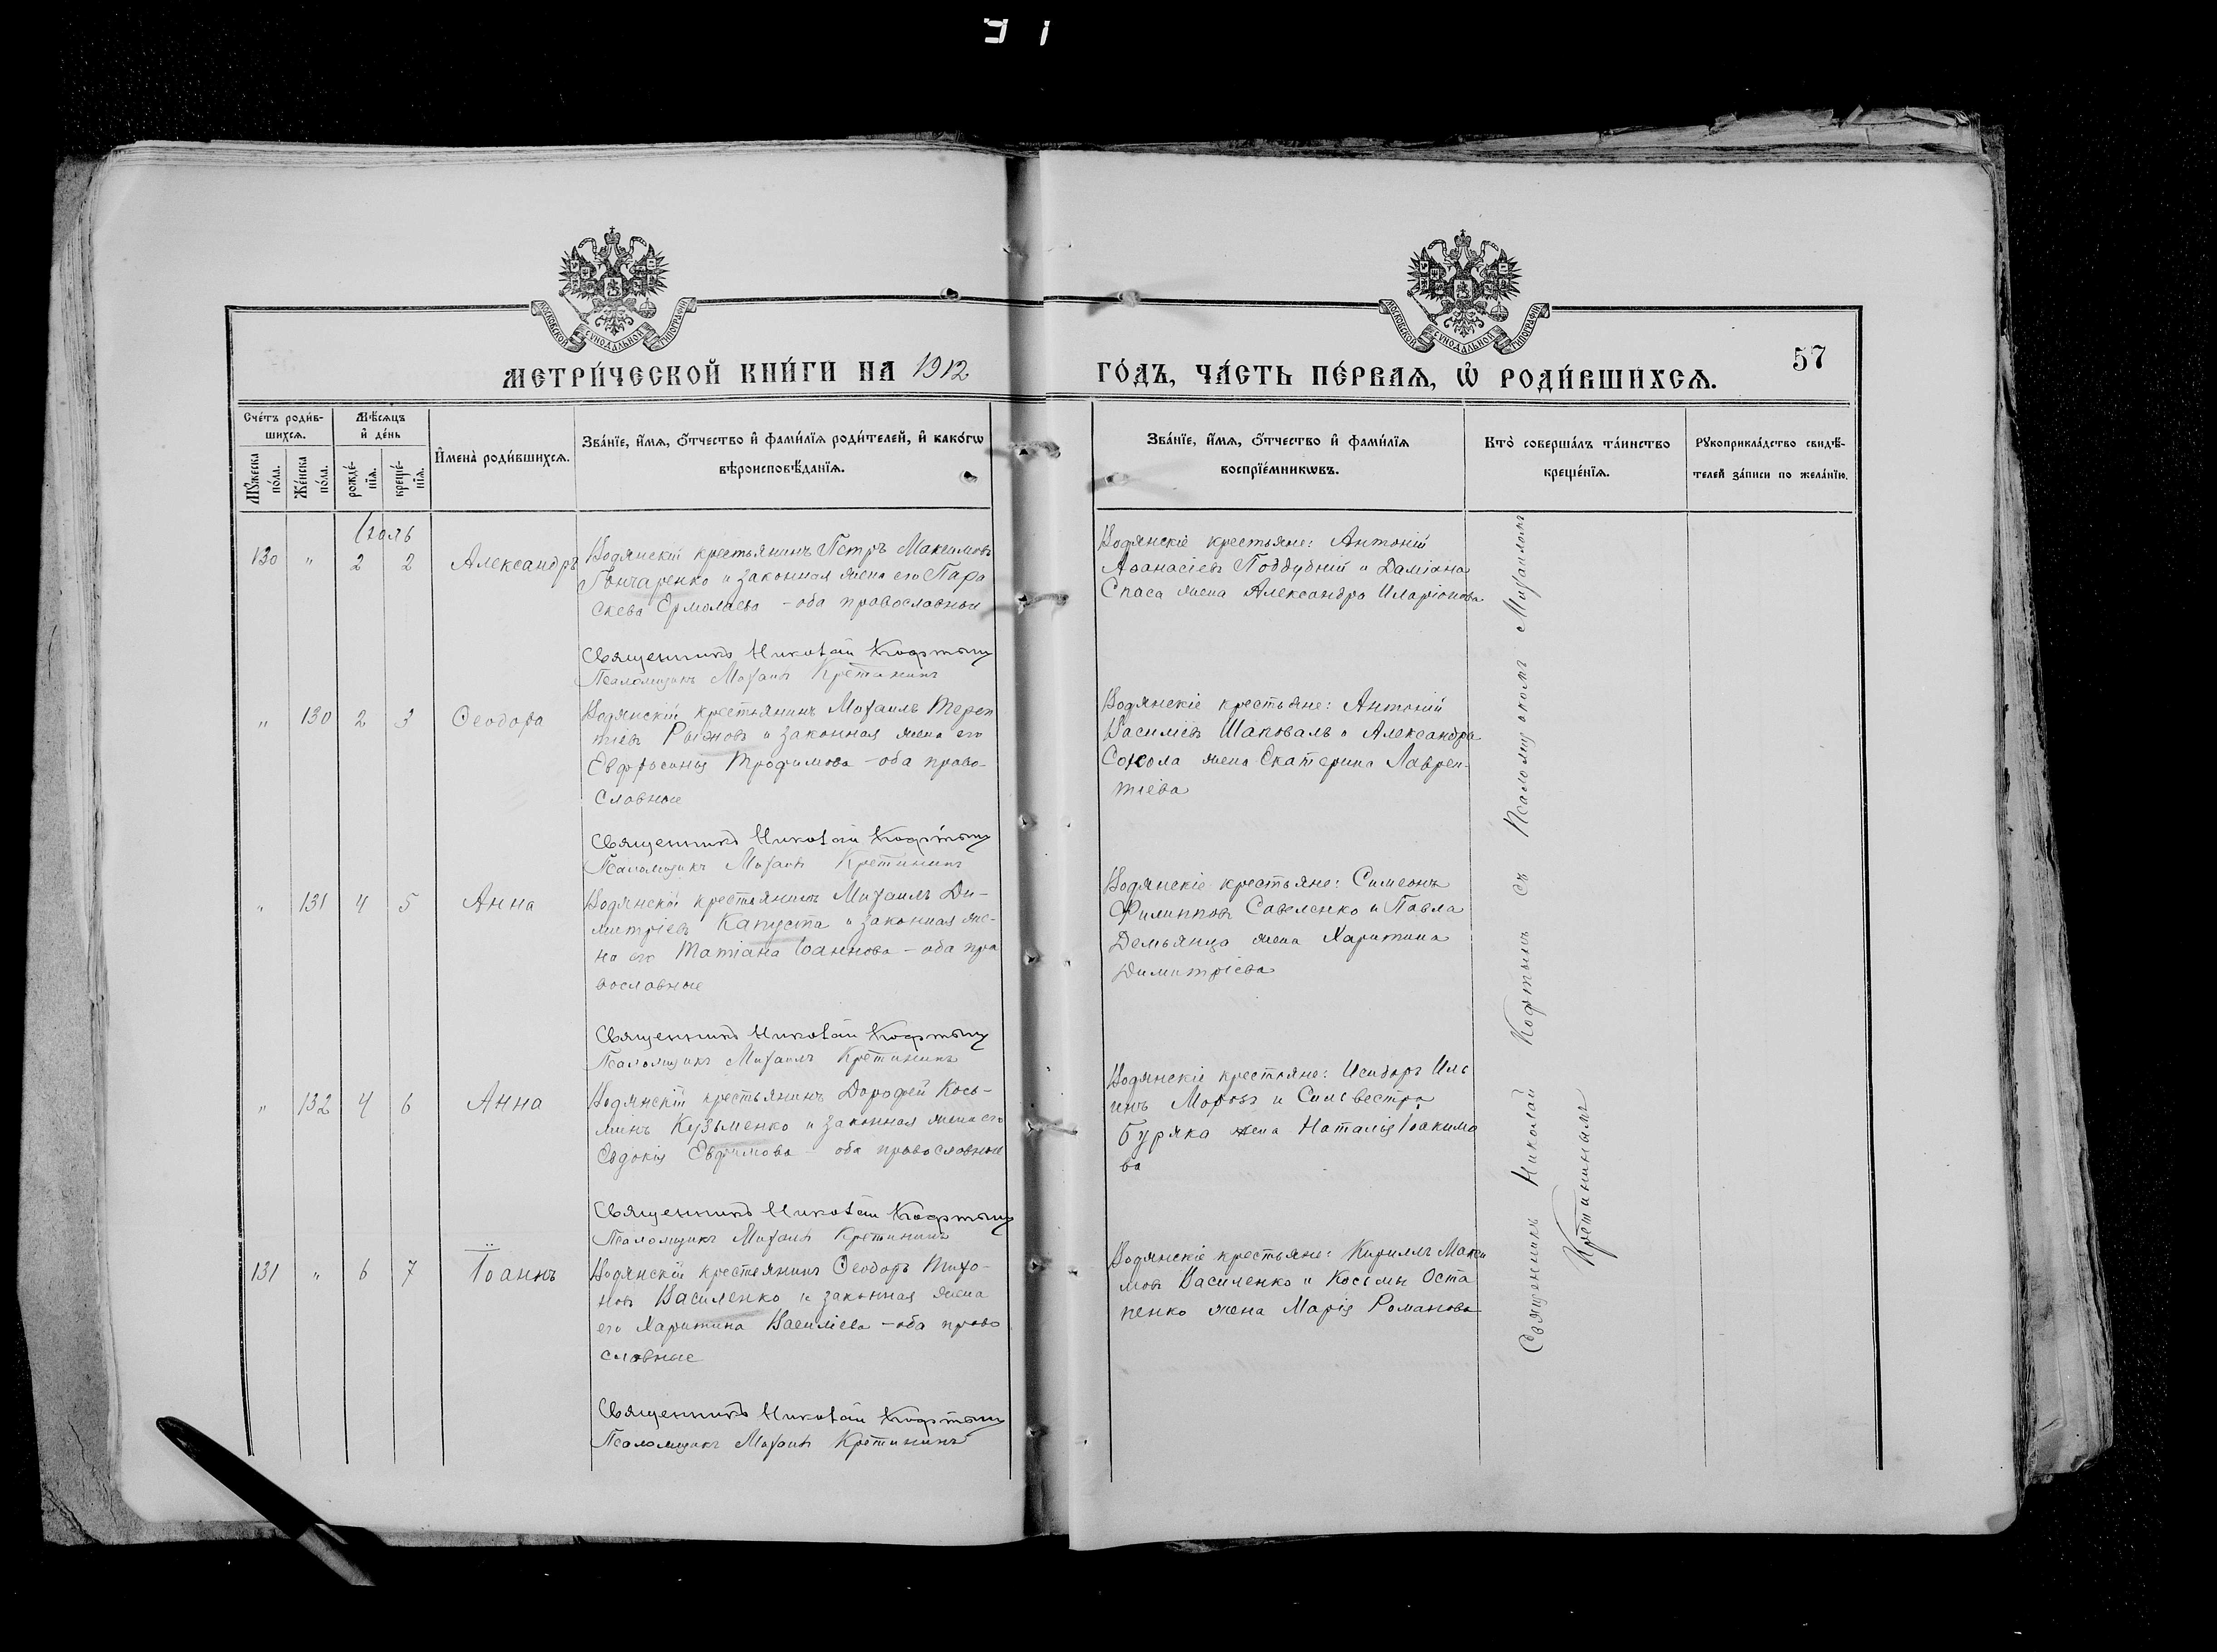 МОСКОВСКОЙ СѴНОДАЛЬНОЙ ТИПОГРАФІИ
МОСКОВСКОЙ СѴНОДАЛЬНОЙ ТИПОГРАФІИ
57
МЕТРИ́ЧЕСКОЙ КНИ́ГИ НА 1912 ГО́ДЪ, ЧА́СТЬ ПЕ́РВАЯ, Ѡ҆ РОДИ́ВШИХСѦ.
Сче́тъ роди́в-
шихсѧ.
Мꙋ́жеска
по́ла.
Же́нска
по́ла.
Мѣ́сѧцъ
и҆ де́нь
рожде́-
нїѧ.
креще́-
нїѧ.
И҆мена̀ роди́вшихсѧ.
Зва́нїе, и҆́мѧ, ѻ҆́тчество и҆ фами́лїѧ роди́телей, и҆ како́гѡ
вѣроисповѣ́данїѧ.
Зва́нїе, и҆́мѧ, ѻ҆́тчество и҆ фами́лїѧ
воспрїе́мникѡвъ.
Кто̀ соверша́лъ та́инство
креще́нїѧ.
Рꙋкоприкла́дство свидѣ́-
телей за́писи по жела́нїю.
Іюль
130 " 2 2 Александръ
Водянскій крестьянинъ Петръ Максимовъ
Гончаренко и законная жена его Пара
скева Ермолаева - оба православные
Священникъ Николай Кофтынъ
Псаломщикъ Михаилъ Кретининъ
Водянскіе крестьяне: Антоній
Аѳанасіевъ Поддубній и Даміана
Спаса жена Александра Иларіонова
" 130 2 3 Ѳеодора
Водянскій крестьянинъ Михаилъ Терен
тіевъ Рыжовъ и законная жена его
Евфросинія Трофимова - оба право-
славные
Священникъ Николай Кофтынъ
Псаломщикъ Михаилъ Кретининъ
Водянскіе крестьяне: Антоній
Василіевъ Шаповалъ и Александра
Сокола жена Екатерина Лаврен-
тіева
" 131 4 5 Анна
Водянскій крестьянинъ Михаилъ Ди-
митріевъ Капуста и законная же-
на его Татіана Іоаннова - оба пра
вославные
Священникъ Николай Кофтынъ
Псаломщикъ Михаилъ Кретининъ
Водянскіе крестьяне: Симеонъ
Филипповъ Савеленко и Павла
Демьянца жена Харитина
Димитріева
" 132 4 6 Анна
Водянскій крестьянинъ Дорофей Кось-
минъ Кузьменко и законная жена его
Евдокія Евфимова - оба православные
Священникъ Николай Кофтынъ
Псаломщикъ Михаилъ Кретининъ
Водянскіе крестьяне: Исидоръ Иль
инъ Морозъ и Сильвестра
Буряка жена Наталія Іоакимо
ва
131 " 6 7 Іоаннъ
Водянскій крестьянинъ Ѳеодоръ Тихо-
новъ Василенко и законная жена
его Харитина Василіева - оба право
славные
Священникъ Николай Кофтынъ
Псаломщикъ Михаилъ Кретининъ
Водянскіе крестьяне: Кириллъ Макси
мовъ Василенко и Косьмы Оста
пенко жена Марія Романова
Священникъ Николай Кофтынъ съ Псаломщикомъ Михаиломъ
Кретининымъ